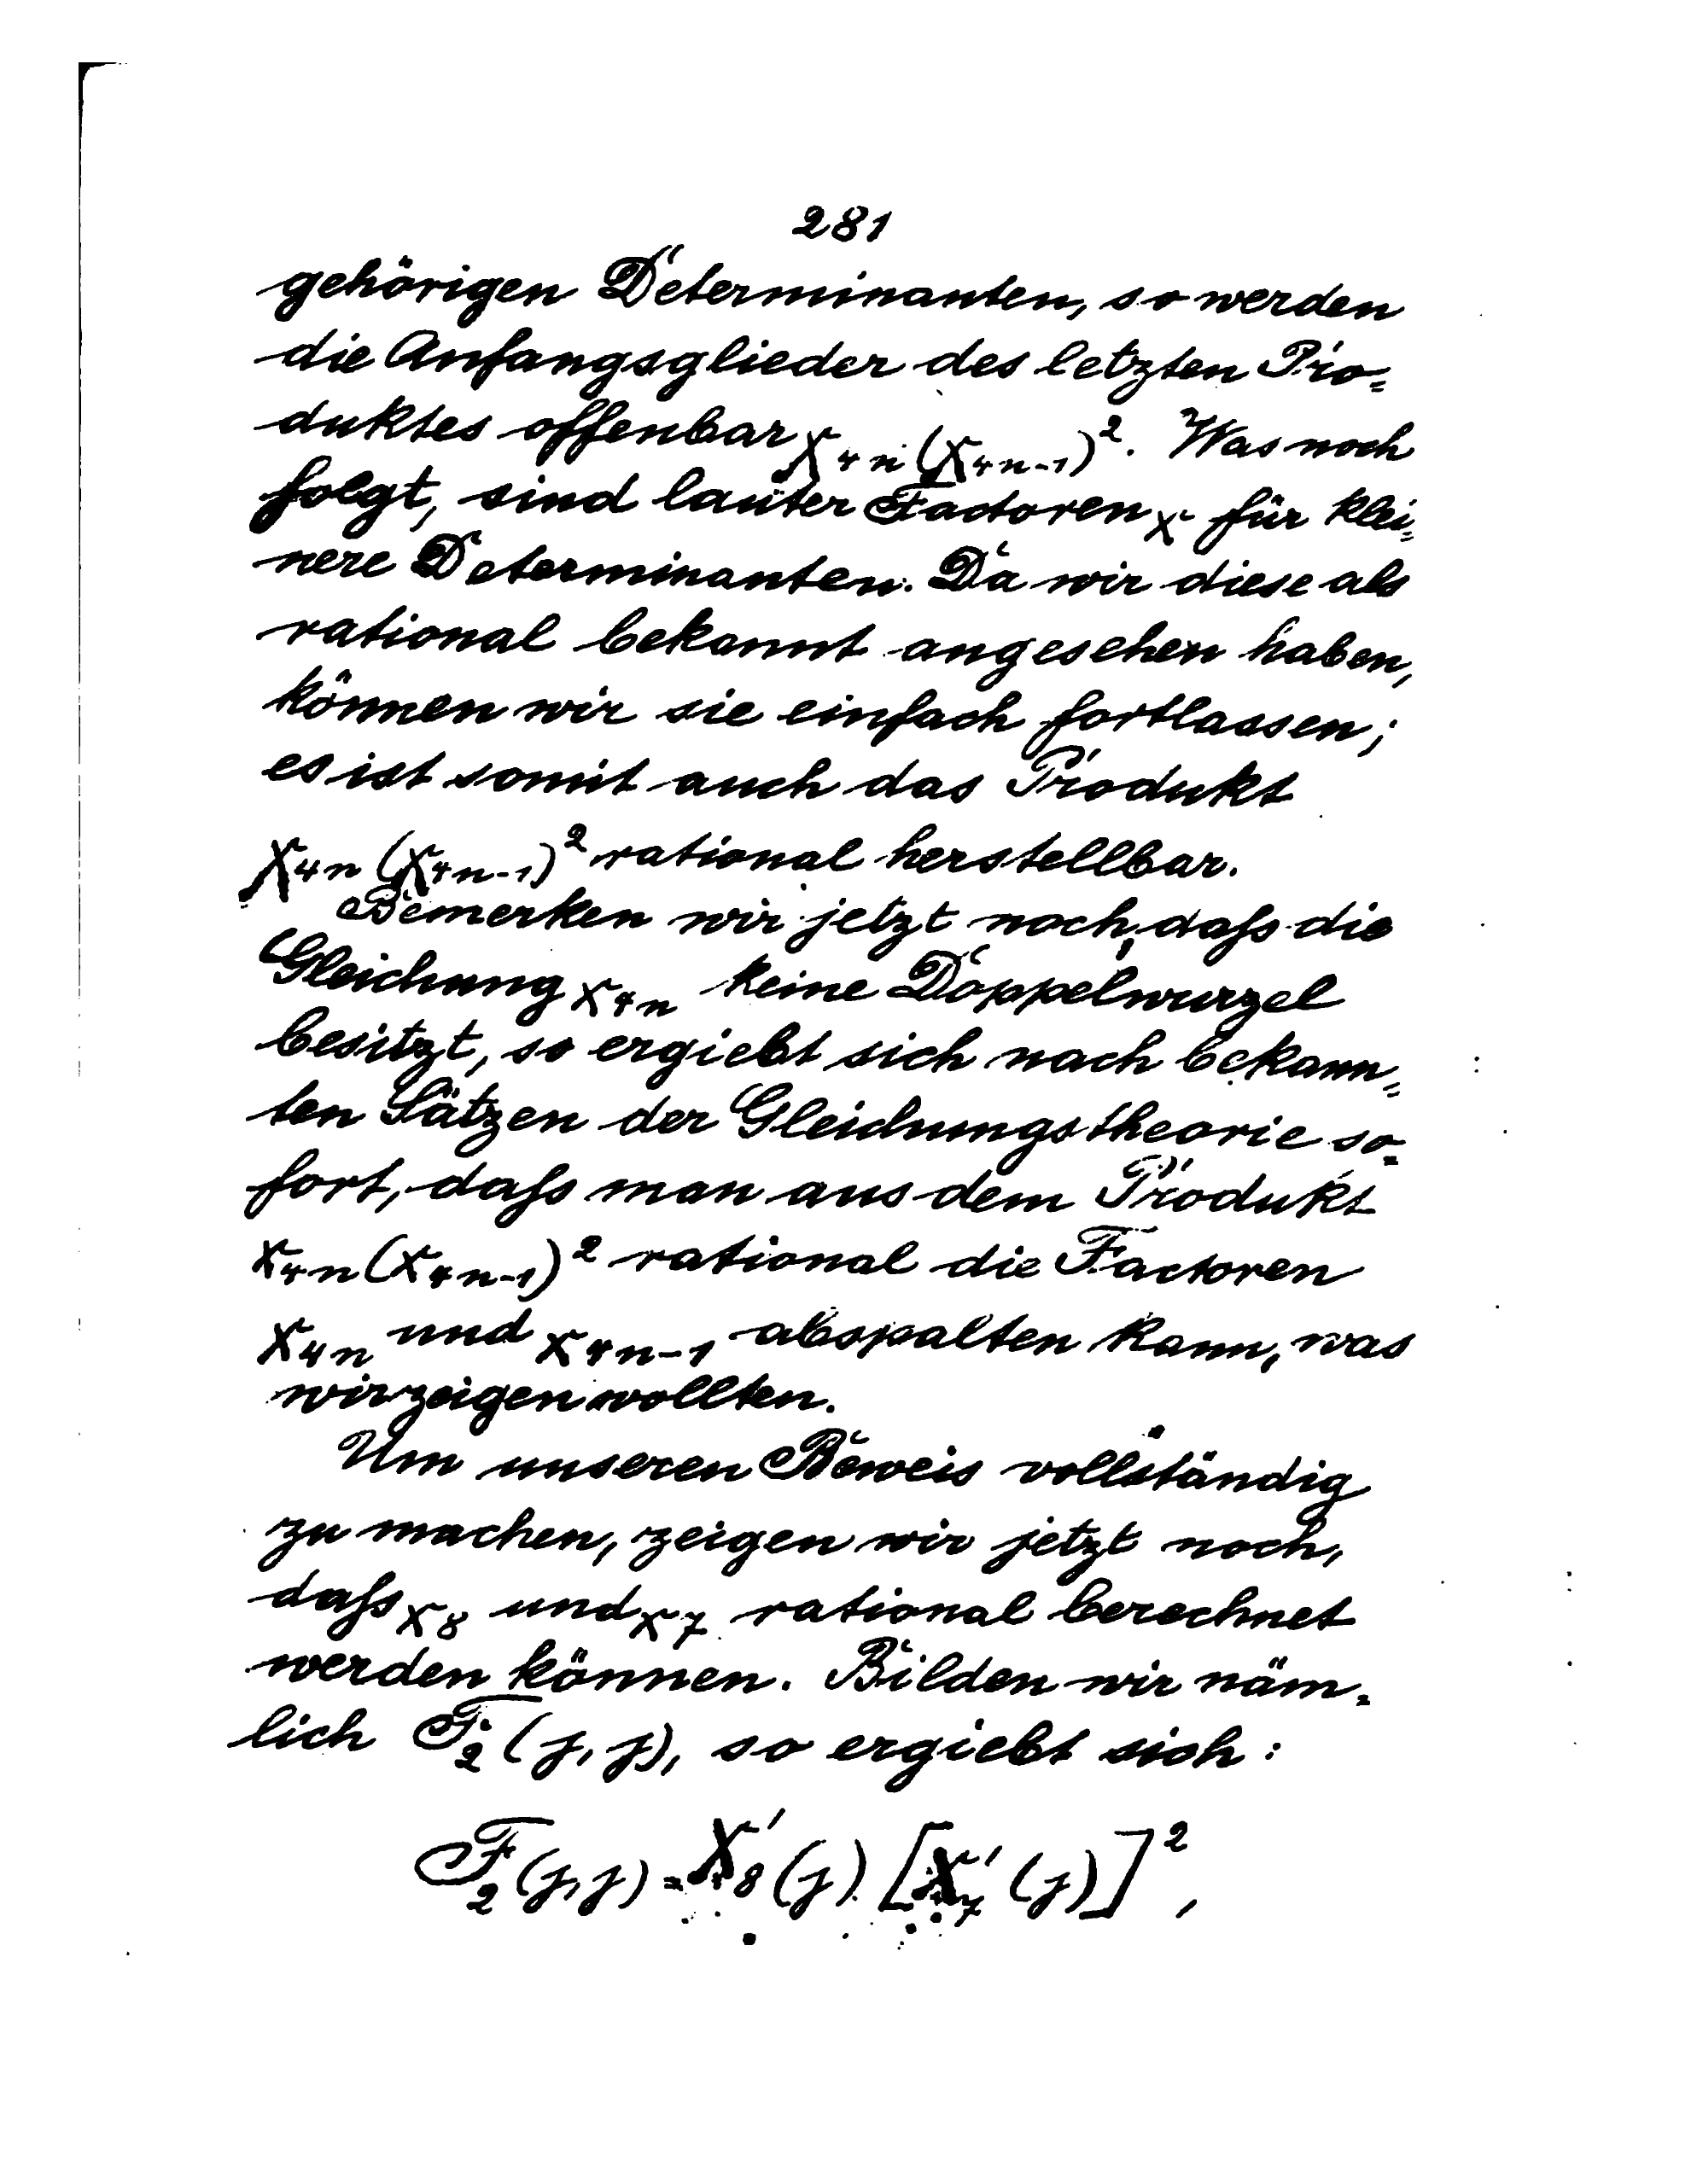 281
gehörigen Determinanten, so werden
die Anfangsglieder des letzten Pro=
duktes offenbar X_{4n}(X_{4n-1})^2. Was noch
folgt, sind lauter Factoren X für klei=
nere Determinanten. Da wir diese als
rational bekannt angesehen haben,
können wir sie einfach fortlassen;
es ist somit auch das Produkt
X_{4n}(X_{4n-1})^2 rational herstellbar.
Bemerken wir jetzt noch, daſs die
Gleichung X_{4n} keine Doppelwurzel
besitzt, so ergiebt sich nach bekann=
ten Sätzen der Gleichungstheorie so=
fort, daſs man aus dem Produkt
X_{4n}(X_{4n-1})^2 rational die Factoren
X_{4n} und X_{4n-1} abspalten kann, was
wir zeigen wollten.
Um unseren Beweis vollständig
zu machen, zeigen wir jetzt noch,
daſs X_8 und X_7 rational berechnet
werden können. Bilden wir näm=
lich F_2(j,j), so ergiebt sich:
F_2(j,j) = X'_8(j) [X'_7(j)]^2,